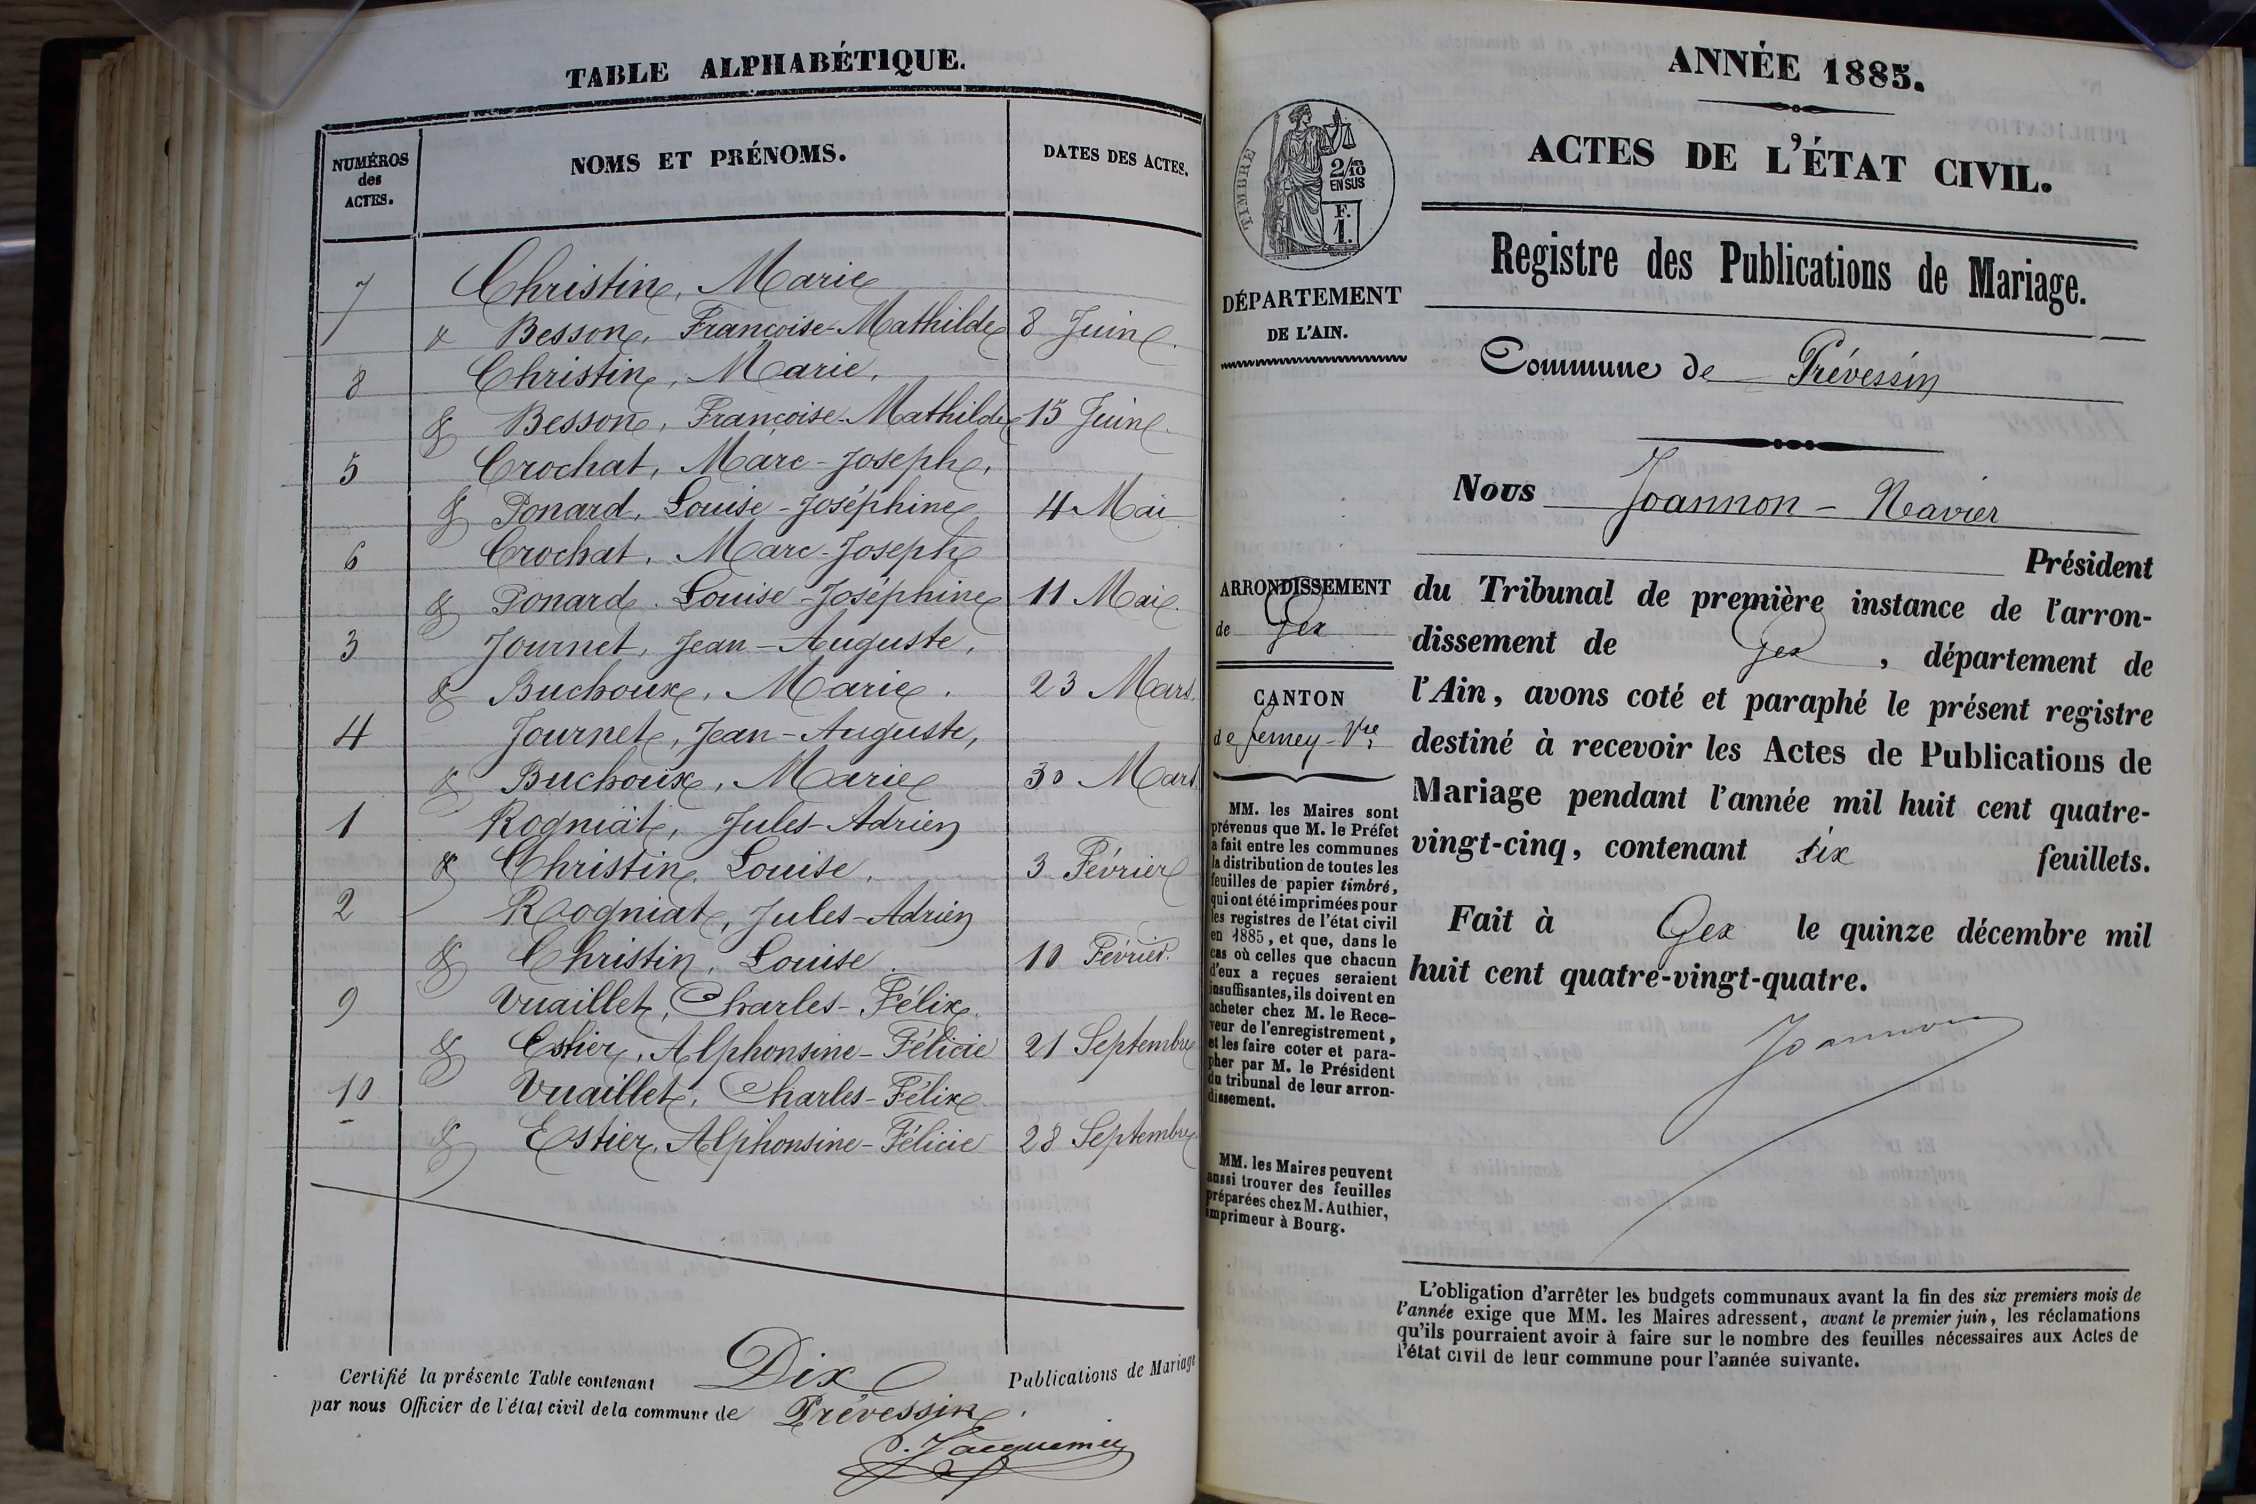 TABLE ALPHABÉTIQUE.
NUMÉROS des ACTES.
NOMS ET PRÉNOMS.
DATES DES ACTES.
7 Christin, Marie
& Besson, Françoise-Mathilde 8 Juin.
8 Christin, Marie.
& Besson, Françoise-Mathilde 15 Juin.
5 Crochat, Marc-Joseph,
& Ponard, Louise-Joséphine 4 Mai
6 Crochat, Marc-Joseph
& Ponard, Louise-Joséphine 11 Mai.
3 Journet, Jean-Auguste,
& Buchoux, Marie. 23 Mars.
4 Journet, Jean-Auguste,
& Buchoux, Marie 30 Mars
1 Rogniat, Jules-Adrien
& Christin, Louise. 3 Février
2 Rogniat, Jules-Adrien
& Christin, Louise. 10 Février.
9 Vuaillet, Charles-Félix.
& Estier, Alphonsine-Félicie 21 Septembre
10 Vuaillet, Charles-Félix
& Estier, Alphonsine-Félicie 28 Septembre
Certifié la présente Table contenant Dix Publications de Mariage
par nous Officier de l'état civil de la commune de Prévessin.
ANNÉE 1885.
ACTES DE L'ÉTAT CIVIL.
TIMBRE
2/10
EN SUS
F.
1.
DÉPARTEMENT
DE L'AIN.
ARRONDISSEMENT
de Gex
CANTON
de Ferney-Vre
MM. les Maires sont
prévenus que M. le Préfet
a fait entre les communes
la distribution de toutes les
feuilles de papier timbré,
qui ont été imprimées pour
les registres de l'état civil
en 1885, et que, dans le
cas où celles que chacun
d'eux a reçues seraient
insuffisantes, ils doivent en
acheter chez M. le Rece-
veur de l'enregistrement,
et les faire coter et para-
pher par M. le Président
du tribunal de leur arron-
dissement.
MM. les Maires peuvent
aussi trouver des feuilles
préparées chez M. Authier,
imprimeur à Bourg.
Registre des Publications de Mariage.
Commune de Prévessin
Nous Joannon - Xavier
Président
du Tribunal de première instance de l'arron-
dissement de Gex, département de
l'Ain, avons coté et paraphé le présent registre
destiné à recevoir les Actes de Publications de
Mariage pendant l'année mil huit cent quatre-
vingt-cinq, contenant six feuillets.
Fait à Gex le quinze décembre mil
huit cent quatre-vingt-quatre.
Joannon
L'obligation d'arrêter les budgets communaux avant la fin des six premiers mois de
l'année exige que MM. les Maires adressent, avant le premier juin, les réclamations
qu'ils pourraient avoir à faire sur le nombre des feuilles nécessaires aux Actes de
l'état civil de leur commune pour l'année suivante.